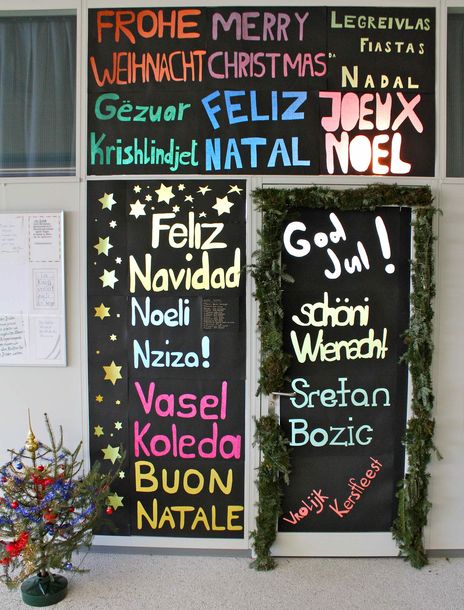 FROHE
WEIHNACHT
MERRY
CHRISTMAS
LEGREIVLAS
FIASTAS
DA
NADAL
Gëzuar
Krishlindjet
FELIZ
NATAL
JOEUX
NOEL
Feliz
Navidad
Noeli
Nziza!
Vasel
Koleda
BUON
NATALE
God
Jul!
schöni
Wienacht
Sretan
Bozic
Vrolijk
Kerstfeest